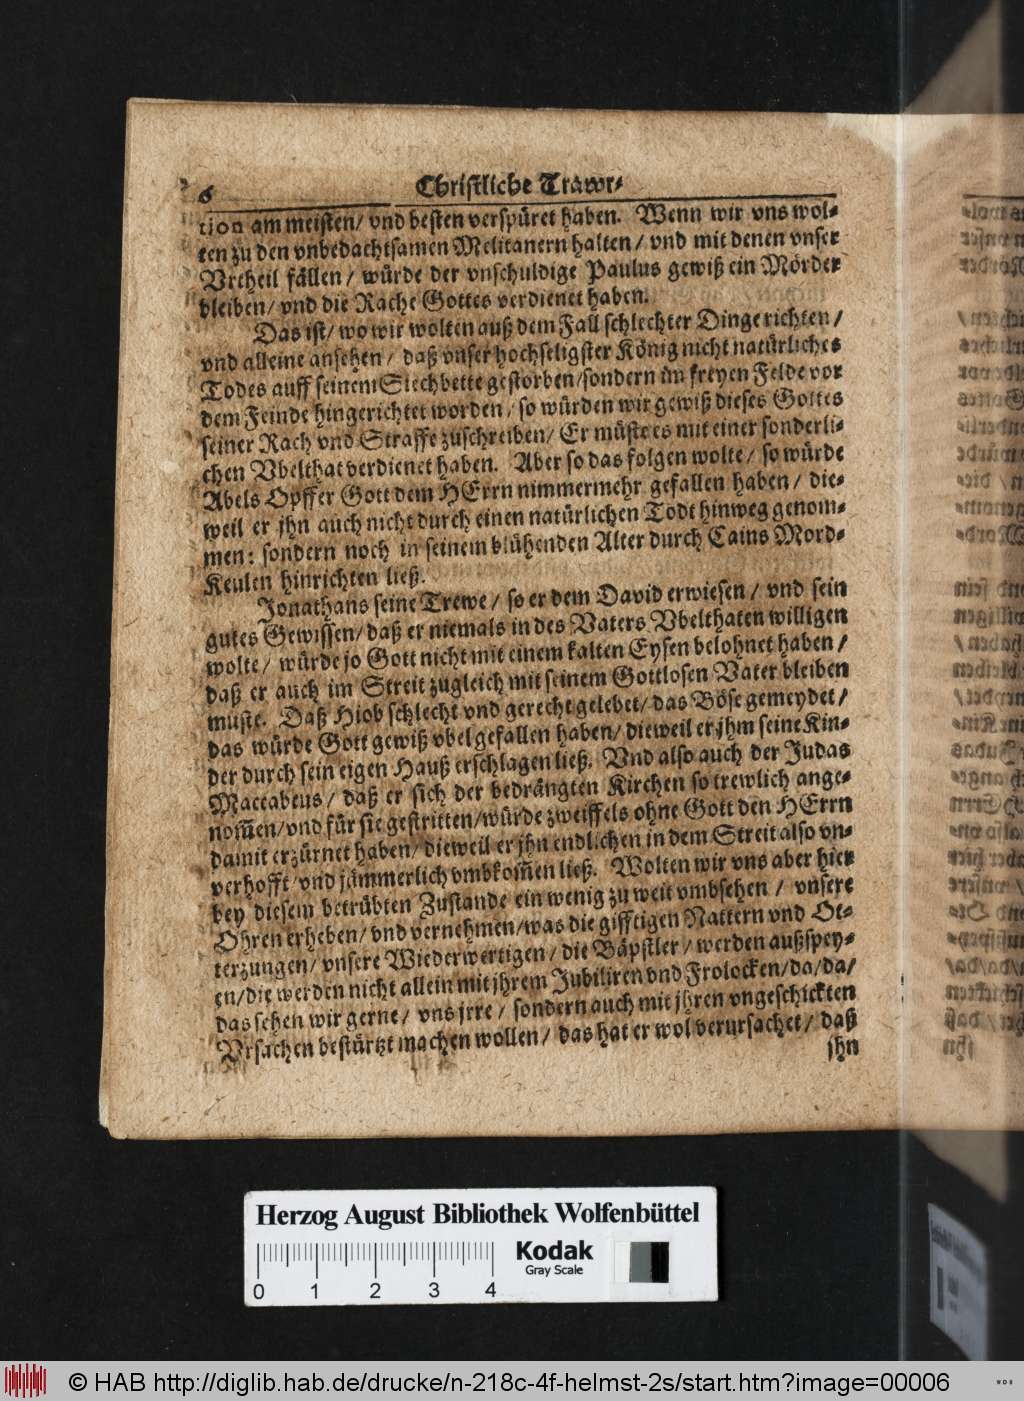 6
Christliche Trawr-
tion am meisten/ vnd besten verspüret haben. Wenn wir vns wol-
ten zu den vnbedachtsamen Melitanern halten/ vnd mit denen vnser
Vrtheil fällen/ würde der vnschuldige Paulus gewiß ein Mörder
bleiben/ vnd die Rache Gottes verdienet haben.
Das ist/ wo wir wolten auß dem Fall schlechter Dinge richten/
vnd alleine ansehen/ daß vnser hochseligster König nicht natürliches
Todes auff seinem Siechbette gestorben/sondern im freyen Felde vor
dem Feinde hingerichtet worden/ so würden wir gewiß dieses Gottes
seiner Rach vnd Straffe zuschreiben/ Er müste es mit einer sonderli-
chen Vbelthat verdienet haben. Aber so das folgen wolte/ so würde
Abels Opffer Gott dem HErrn nimmermehr gefallen haben/ die-
weil er jhn auch nicht durch einen natürlichen Todt hinweg genom-
men: sondern noch in seinem blühenden Alter durch Cains Mord-
Keulen hinrichten ließ.
Jonathans seine Trewe/ so er dem David erwiesen/ vnd sein
gutes Gewissen/ daß er niemals in des Vaters Vbelthaten willigen
wolte/ würde jo Gott nicht mit einem kalten Eysen belohnet haben/
daß er auch im Streit zugleich mit seinem Gottlosen Vater bleiben
muste. Daß Hiob schlecht vnd gerecht gelebet/ das Böse gemeydet/
das würde Gott gewiß vbel gefallen haben/ dieweil er jhm seine Kin-
der durch sein eigen Hauß erschlagen ließ. Vnd also auch der Judas
Maccabeus/ daß er sich der bedrängten Kirchen so trewlich ange-
nom̃en/vnd für sie gestritten/würde zweiffels ohne Gott den HErrn
damit erzürnet haben/ dieweil er jhn endlichen in dem Streit also vn-
verhofft vnd jämmerlich vmbkom̃en ließ. Wolten wir vns aber hier
bey diesem betrübten Zustande ein wenig zu weit vmbsehen/ vnsere
Ohren erheben/ vnd vernehmen/was die gifftigen Nattern vnd Ot-
terzungen/ vnsere Wiederwertigen/ die Bäpstler/ werden außspey-
en/die werden nicht allein mit jhrem Jubiliren vnd Frolocken/da/da/
das sehen wir gerne/ vns jrre/ sondern auch mit jhren vngeschickten
Vrsachen bestürtzt machen wollen/ das hat er wol verursachet/ daß
jhn
Herzog August Bibliothek Wolfenbüttel
Kodak
Gray Scale
0 1 2 3 4
© HAB http://diglib.hab.de/drucke/n-218c-4f-helmst-2s/start.htm?image=00006